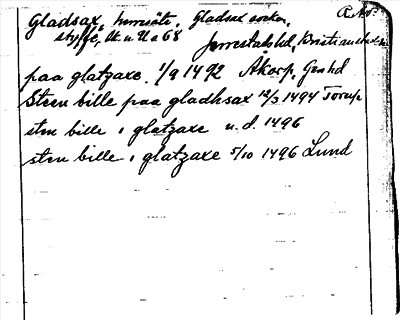 Gladsax, herresäte, Gladsax socken, R.A.P.
Styffe, Un. u. Un. a 68 Jerrestads hd, Kristianstads
paa glatzaxe. 1/9 1492 Akarp, Gershd
Steen bille paa gladhsax 12/3 1494 Torup
sten bille i glatzaxe u. d. 1496
sten bille i glatzaxe 5/10 1496 Lund